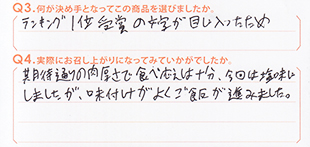 Q3.何が決め手となってこの商品を選びましたか。
ランキング1位受賞の文字が目に入ったため
Q4.実際にお召し上がりになってみていかがでしたか。
期待通りの肉厚さで食べ応えは十分、今回は塩味に
しましたが、味付けがよくご飯が進みました。